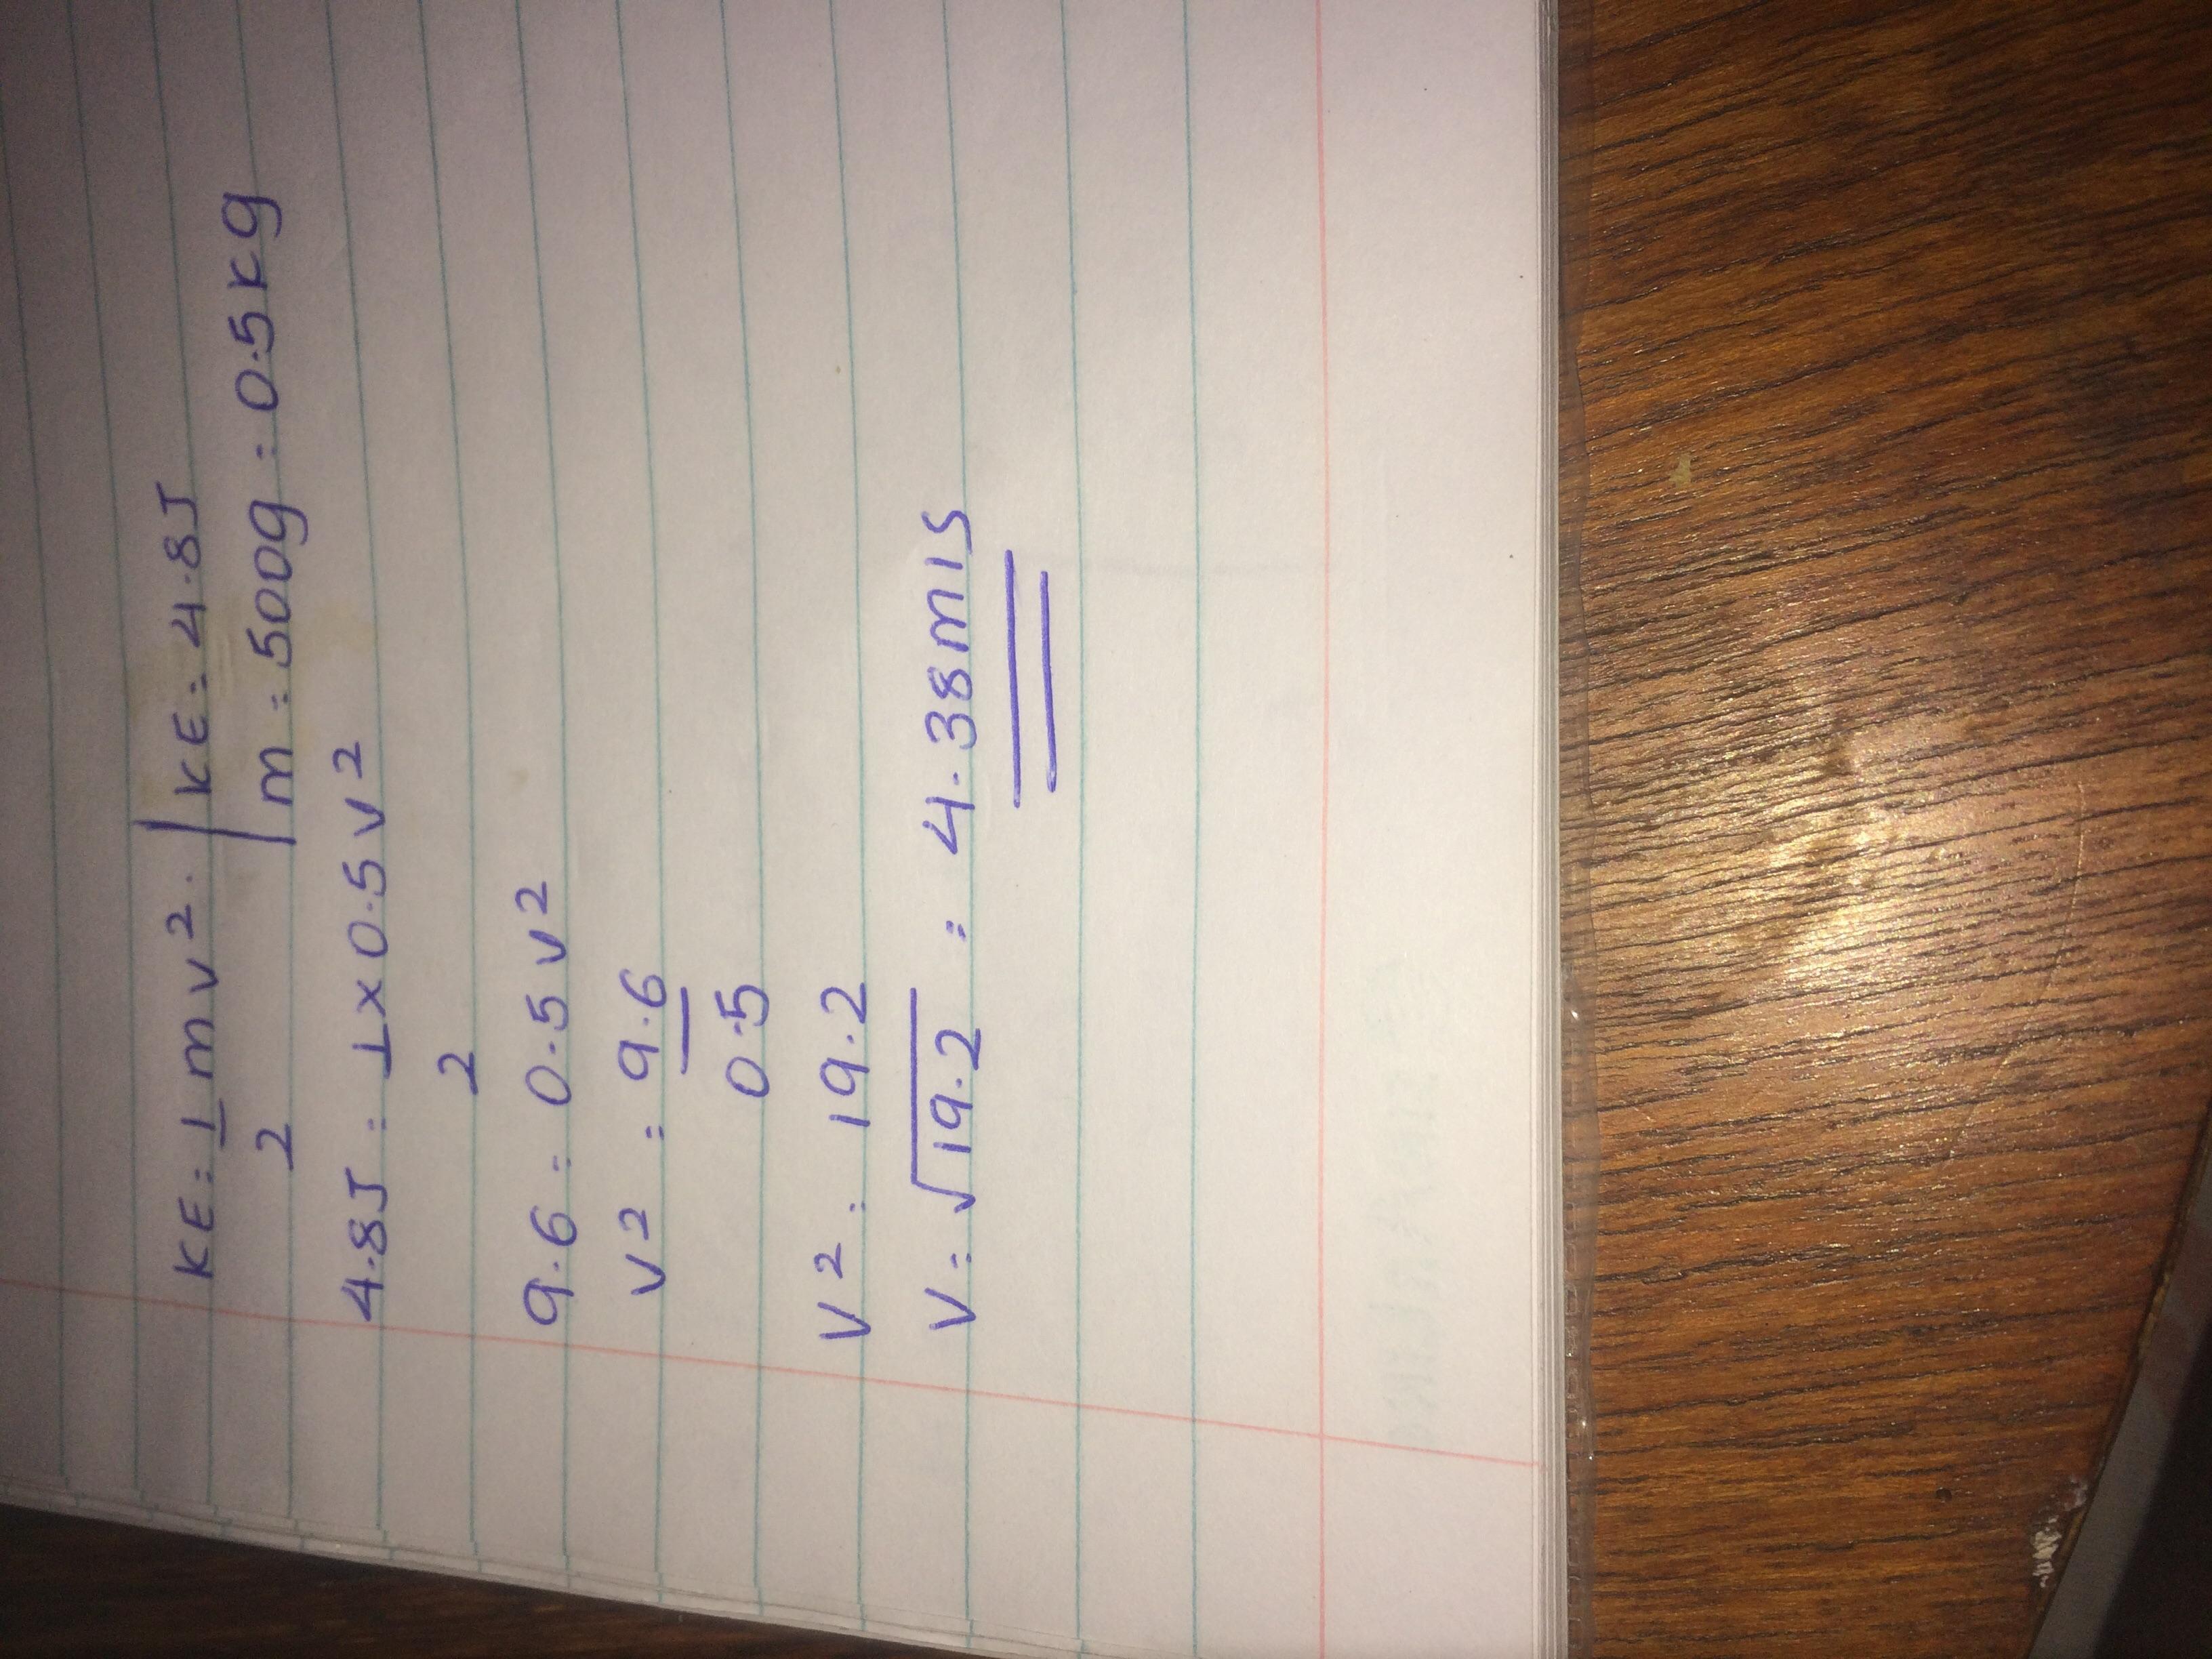 KE = 1 mv². | KE = 4.8J
2 | m = 500g = 0.5kg
4.8J = 1 x 0.5v²
2
9.6 = 0.5v²
v² = 9.6
0.5
v² = 19.2
v = √19.2 = 4.38m/s